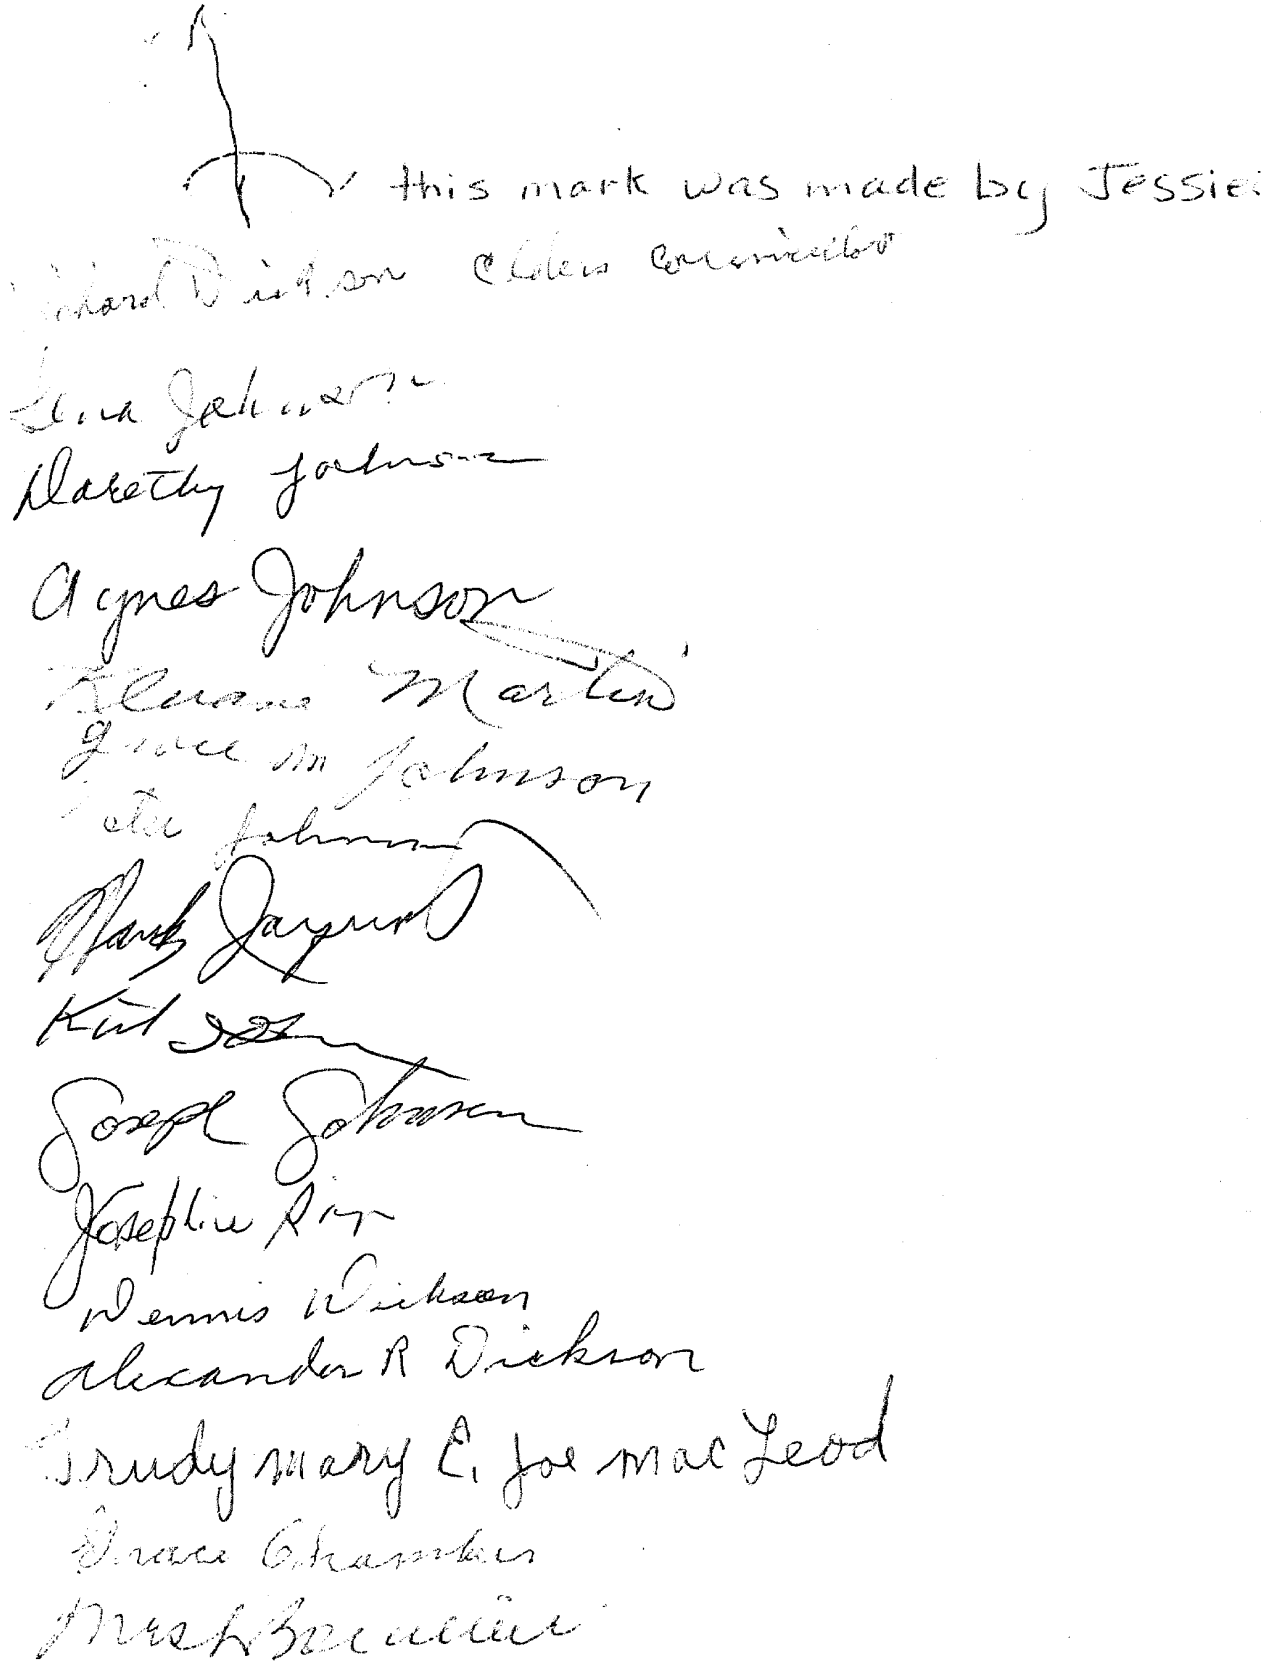 this mark was made by Jessie
Dickson Elders
Lena Johnson
Dorethy Johnson
Agnes Johnson
Kluane Martin
Grace M Johnson
Johnson
Joseph Johnson
Josephine
Dennis Dickson
Alexander R Dickson
Trudy Mary E. Joe MacLeod
Grace Chambers
Mrs